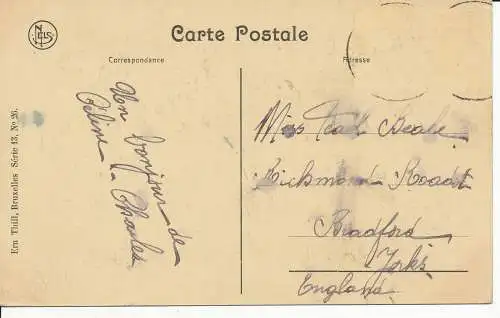 NELS
Carte Postale
Correspondance
Adresse
Ern Thill, Bruxelles Série 13, No 26.
bonjour de
Céline Charles
Miss Beale
Richmond Road
Bradford
Yorks
England